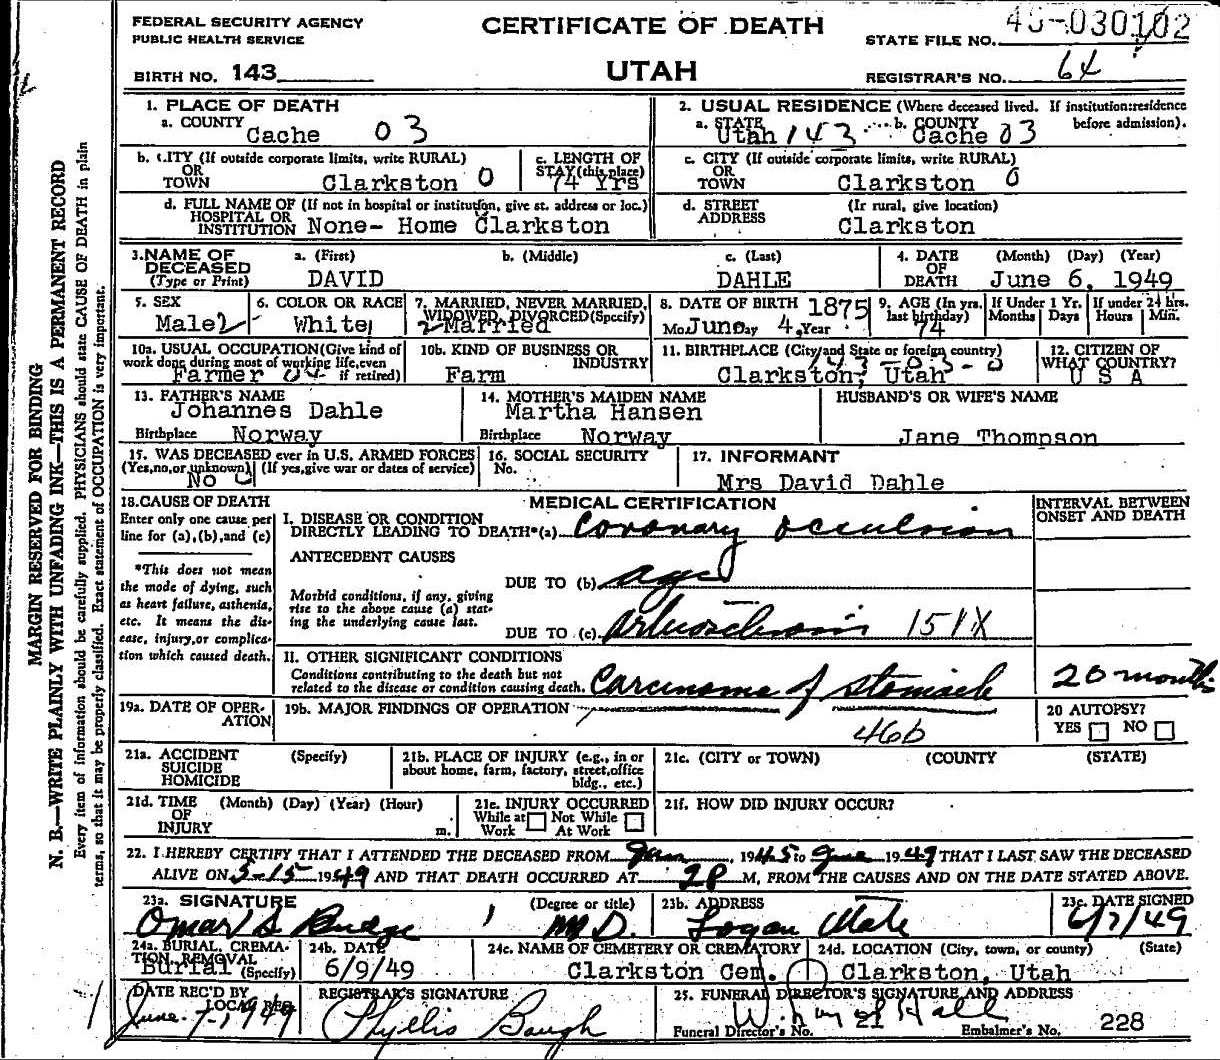 FEDERAL SECURITY AGENCY
PUBLIC HEALTH SERVICE
CERTIFICATE OF DEATH
STATE FILE NO. 030102
BIRTH NO. 143
UTAH
REGISTRAR'S NO. 64
MARGIN RESERVED FOR BINDING
N. B.—WRITE PLAINLY WITH UNFADING INK—THIS IS A PERMANENT RECORD
Every item of information should be carefully supplied. PHYSICIANS should state CAUSE OF DEATH in plain
terms, so that it may be properly classified. Exact statement of OCCUPATION is very important.
1. PLACE OF DEATH
a. COUNTY
Cache 03
2. USUAL RESIDENCE (Where deceased lived. If institution:residence before admission).
a. STATE Utah 143 b. COUNTY Cache 03
b. CITY (If outside corporate limits, write RURAL)
OR
TOWN Clarkston 0
c. LENGTH OF
STAY (this place)
74 Yrs
c. CITY (If outside corporate limits, write RURAL)
OR
TOWN Clarkston 0
d. FULL NAME OF (If not in hospital or institution, give st. address or loc.)
HOSPITAL OR
INSTITUTION None- Home Clarkston
d. STREET (If rural, give location)
ADDRESS Clarkston
3. NAME OF
DECEASED
(Type or Print)
a. (First)
DAVID
b. (Middle)
c. (Last)
DAHLE
4. DATE
OF
DEATH
(Month) (Day) (Year)
June 6, 1949
5. SEX
Male 2
6. COLOR OR RACE
White
7. MARRIED, NEVER MARRIED,
WIDOWED, DIVORCED (Specify)
2 Married
8. DATE OF BIRTH 1875
Mo. June Day 4, Year
9. AGE (In yrs.
last birthday)
74
If Under 1 Yr.
Months Days
If under 24 hrs.
Hours Min.
10a. USUAL OCCUPATION (Give kind of
work done during most of working life, even
if retired)
Farmer
10b. KIND OF BUSINESS OR
INDUSTRY
Farm
11. BIRTHPLACE (City and State or foreign country)
43-03-0
Clarkston, Utah
12. CITIZEN OF
WHAT COUNTRY?
U S A
13. FATHER'S NAME
Johannes Dahle
Birthplace Norway
14. MOTHER'S MAIDEN NAME
Martha Hansen
Birthplace Norway
HUSBAND'S OR WIFE'S NAME
Jane Thompson
15. WAS DECEASED ever in U.S. ARMED FORCES
(Yes, no, or unknown) (If yes, give war or dates of service)
No
16. SOCIAL SECURITY
No.
17. INFORMANT
Mrs David Dahle
18. CAUSE OF DEATH
Enter only one cause per
line for (a), (b), and (c)
*This does not mean
the mode of dying, such
as heart failure, asthenia,
etc. It means the dis-
ease, injury, or complica-
tion which caused death.
MEDICAL CERTIFICATION
INTERVAL BETWEEN
ONSET AND DEATH
I. DISEASE OR CONDITION
DIRECTLY LEADING TO DEATH*(a) Coronary occulsion
ANTECEDENT CAUSES
DUE TO (b) age
Morbid conditions, if any, giving
rise to the above cause (a) stat-
ing the underlying cause last.
DUE TO (c) 151X
II. OTHER SIGNIFICANT CONDITIONS
Conditions contributing to the death but not
related to the disease or condition causing death. Carcinoma of stomach
20 months
19a. DATE OF OPER-
ATION
19b. MAJOR FINDINGS OF OPERATION
46b
20 AUTOPSY?
YES NO
21a. ACCIDENT (Specify)
SUICIDE
HOMICIDE
21b. PLACE OF INJURY (e.g., in or
about home, farm, factory, street, office
bldg., etc.)
21c. (CITY or TOWN) (COUNTY) (STATE)
21d. TIME (Month) (Day) (Year) (Hour)
OF
INJURY m.
21e. INJURY OCCURRED
While at Not While
Work At Work
21f. HOW DID INJURY OCCUR?
22. I HEREBY CERTIFY THAT I ATTENDED THE DECEASED FROM Jan, 1945 to June 1949 THAT I LAST SAW THE DECEASED
ALIVE ON 5-15 1949 AND THAT DEATH OCCURRED AT M, FROM THE CAUSES AND ON THE DATE STATED ABOVE.
23a. SIGNATURE (Degree or title)
Omar S Budge M.D.
23b. ADDRESS
Logan Utah
23c. DATE SIGNED
6/7/49
24a. BURIAL, CREMA-
TION, REMOVAL
Burial (Specify)
24b. DATE
6/9/49
24c. NAME OF CEMETERY OR CREMATORY
Clarkston Cem.
24d. LOCATION (City, town, or county) (State)
Clarkston, Utah
DATE REC'D BY
LOCAL REG.
June 7-1949
REGISTRAR'S SIGNATURE
Phyllis Baugh
25. FUNERAL DIRECTOR'S SIGNATURE AND ADDRESS
Hall
Funeral Director's No. 21 Embalmer's No. 228